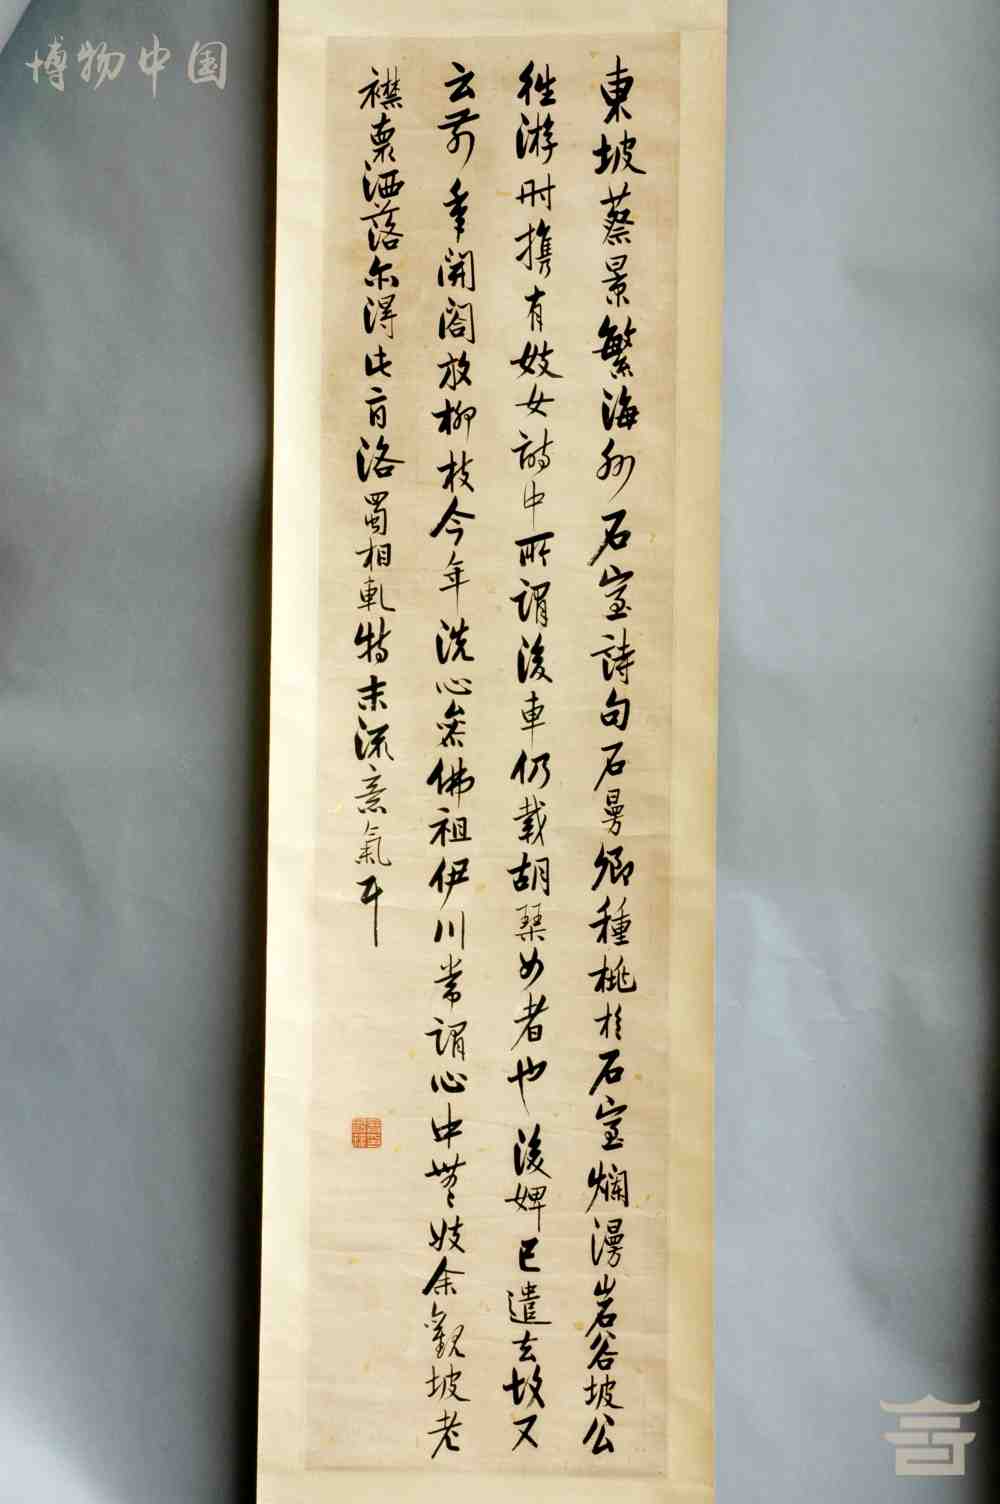 博物中国
東坡蔡景繁海州石室詩句石曼卿種桃於石室爛漫岩谷坡公
往游時攜有妓女詩中所謂後車仍載胡琴女者也後婢已遣去故又
云前年開閤放柳枝今年洗心參佛祖伊川常謂心中無妓余觀坡老
襟裏洒落亦得此旨洛蜀相軋特末流意氣耳